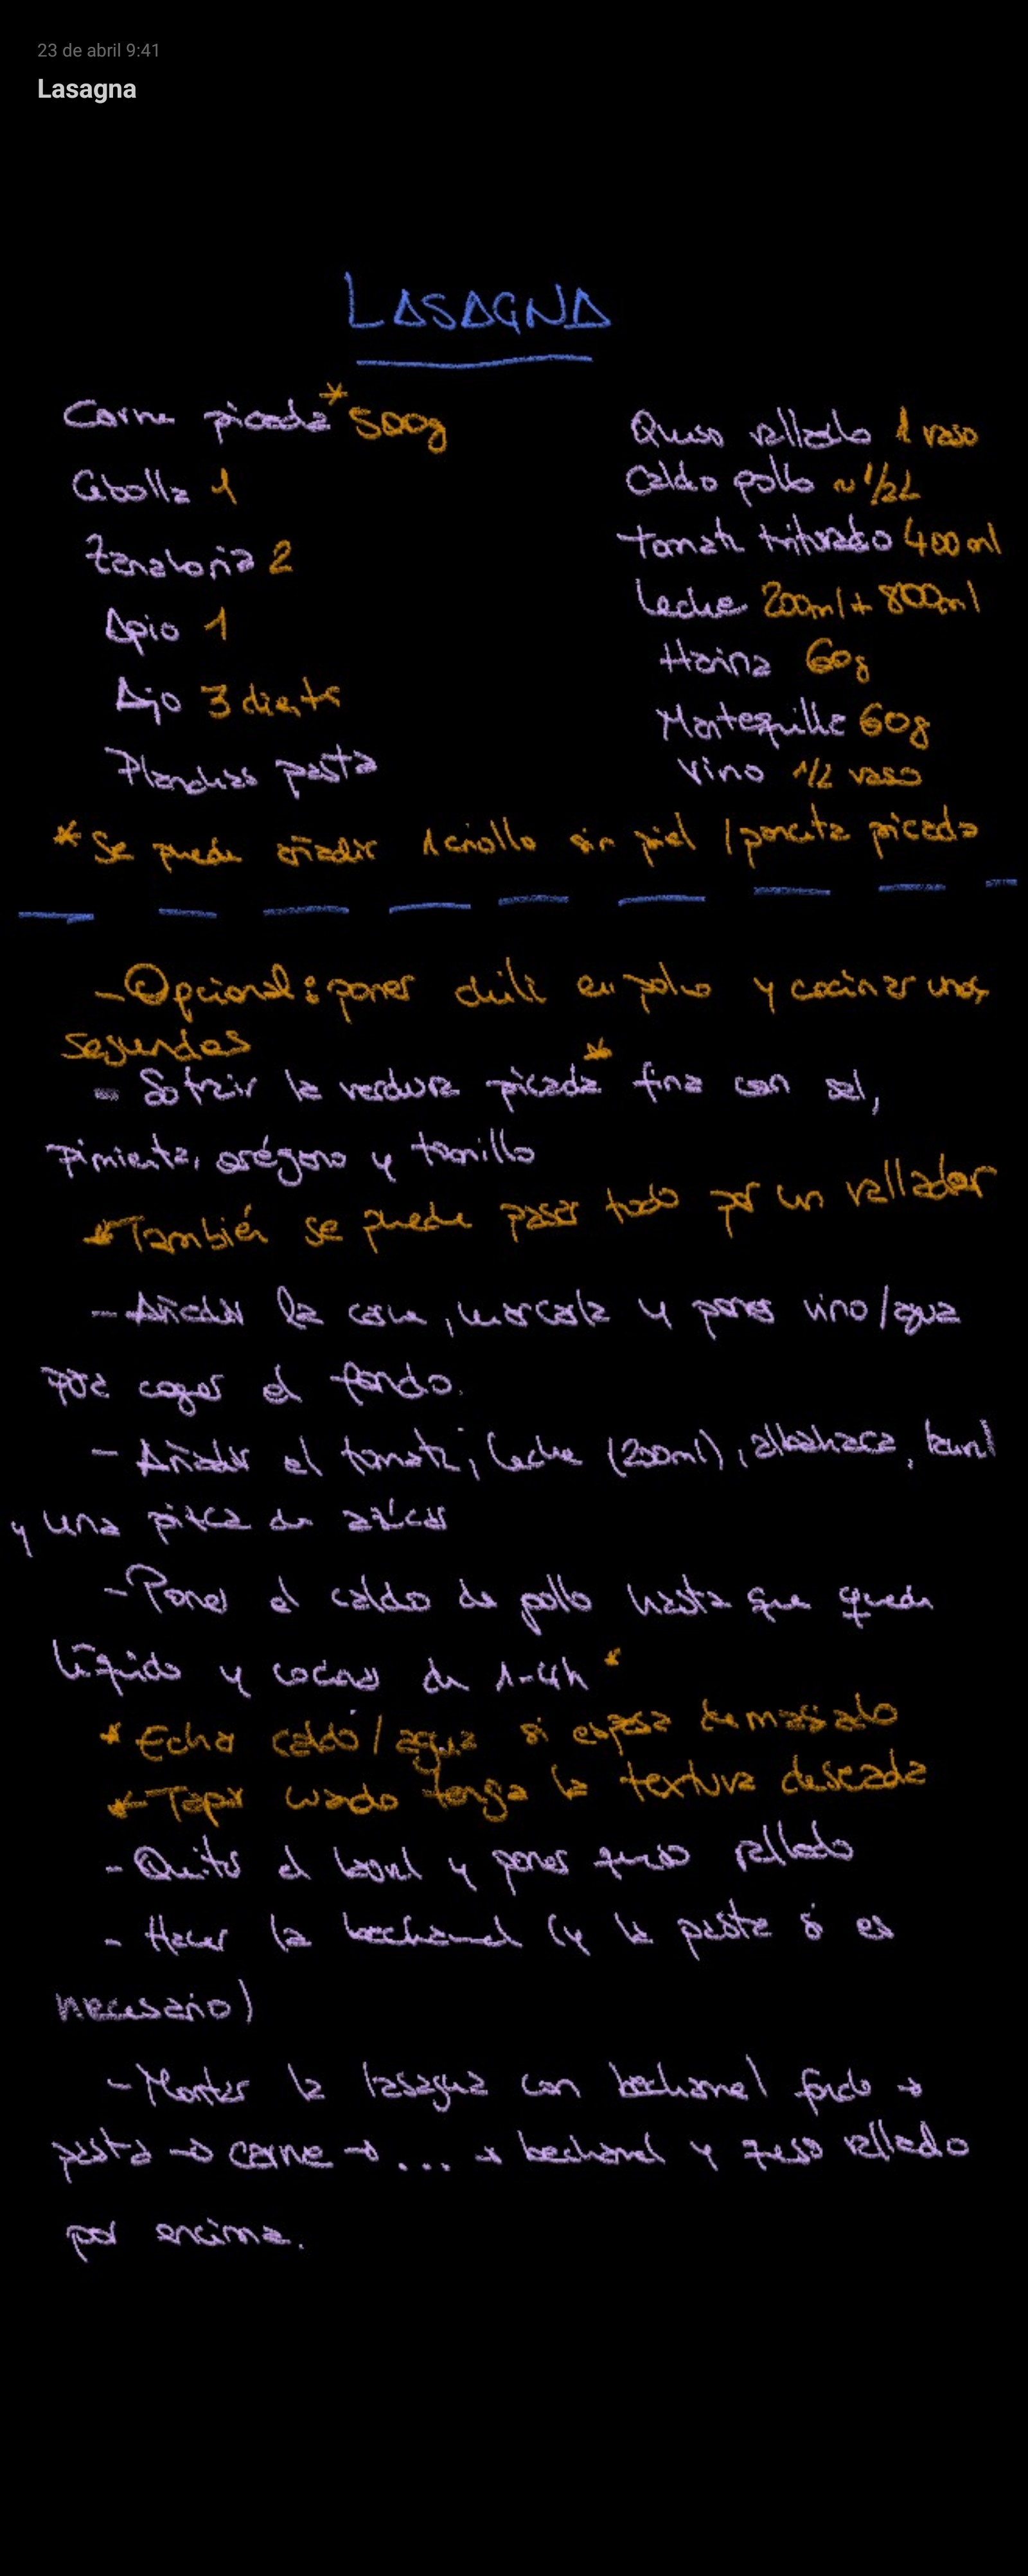 23 de abril 9:41
Lasagna
LASAGNA
Carne picada* 500g
Cebolla 1
Zanahoria 2
Apio 1
Ajo 3 dientes
Planchas pasta
Queso rallado 1 vaso
Caldo pollo ~ 1/2 L
Tomate triturado 400ml
Leche 200ml + 800ml
Harina 60g
Mantequilla 60g
Vino 1/2 vaso
* Se puede añadir 1 criollo sin piel / panceta picada
- Opcional: poner chili en polvo y cocinar unos
segundos
- Sofreir la verdura picada* fina con sal,
pimienta, orégano y tomillo
* También se puede pasar todo por un rallador
- Añadir la carne, marcarla y poner vino/agua
para coger el fondo.
- Añadir el tomate, leche (200ml), albahaca, laurel
y una pizca de azúcar
- Poner el caldo de pollo hasta que quede
líquido y cocinar de 1-4h *
* Echar caldo/agua si espesa demasiado
* Tapar cuando tenga la textura deseada
- Quitar el laurel y poner queso rallado
- Hacer la bechamel (y la pasta si es
necesario)
- Montar la lasagna con bechamel fondo →
pasta → carne → ... → bechamel y queso rallado
por encima.